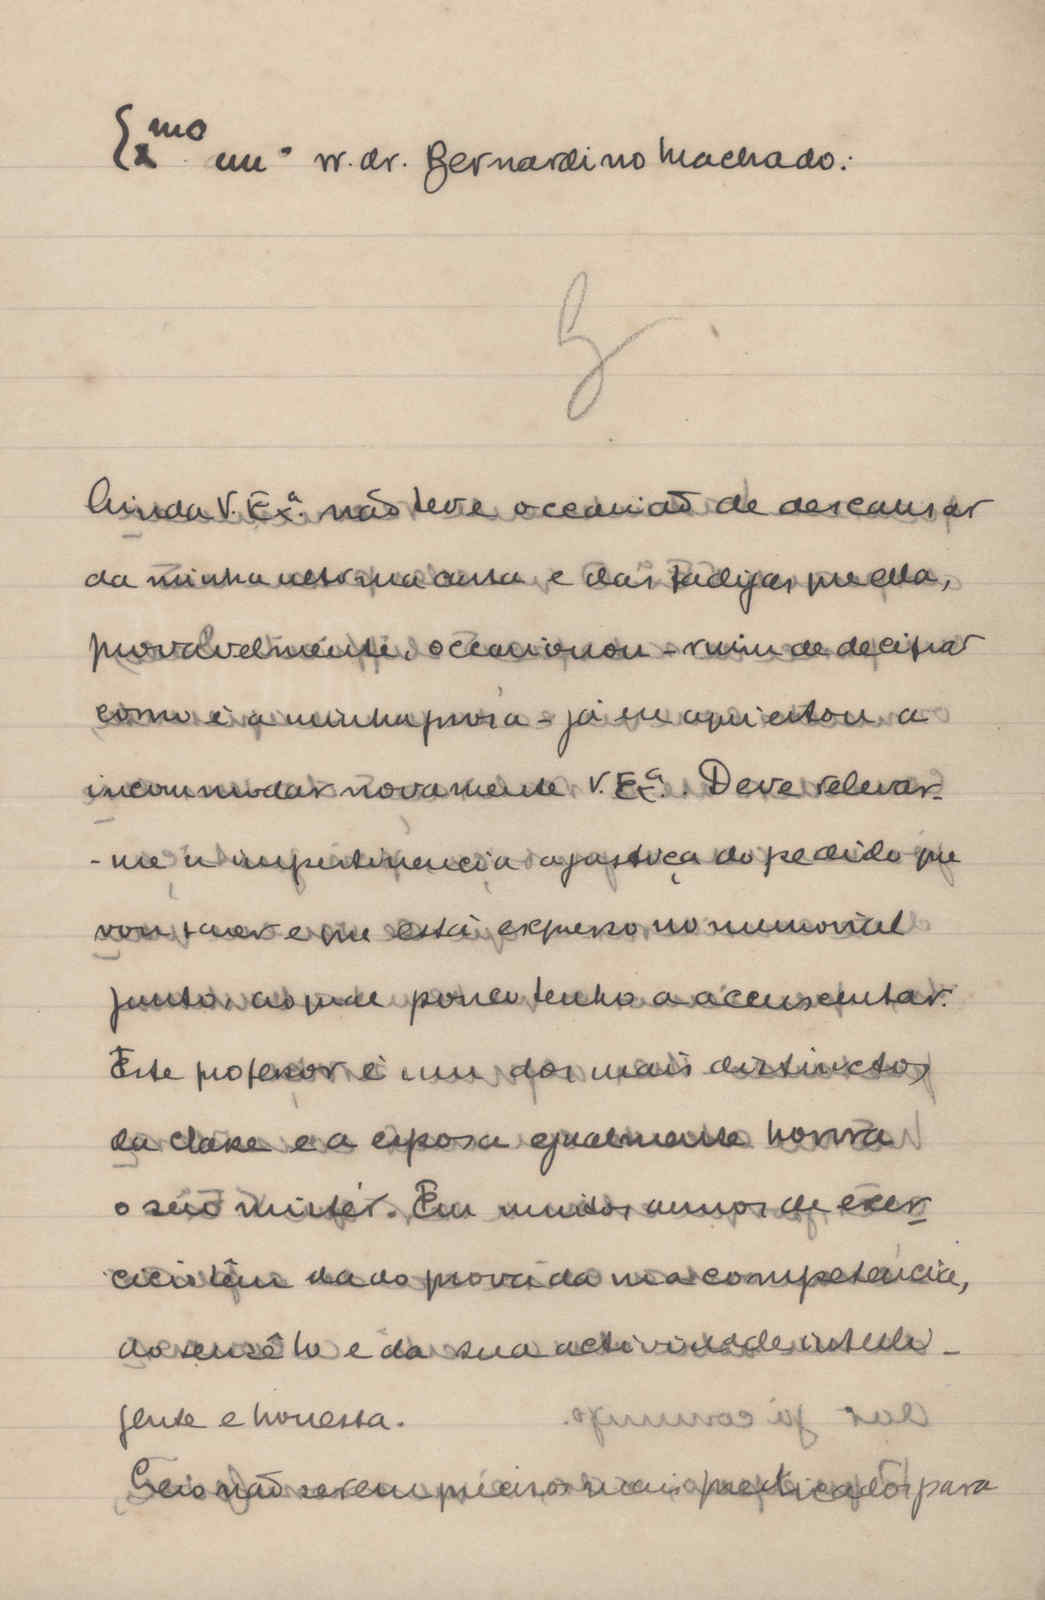 Exmo sr. dr. Bernardino Machado:
Ainda V. Exª. não teve occasião de descansar
da minha ultima carta e das fadigas que ella,
provavelmente, occasionou - ruim de decifrar
como é a minha prosa - já me apresentou a
incommodar novamente V. Exª. Deve relevar-
-me a impertinencia a justiça do pedido que
vou fazer e que está expresso no memorial
junto, ao qual pouco tenho a accrescentar.
Este professor é um dos mais distinctos
da classe e a esposa egualmente honra
o seu mistér. Em muitos annos de exer-
cicio têm dado prova da sua competencia,
do seu zêlo e da sua actividade intelli-
gente e honesta.
Seio não serem precisos mais predicados para